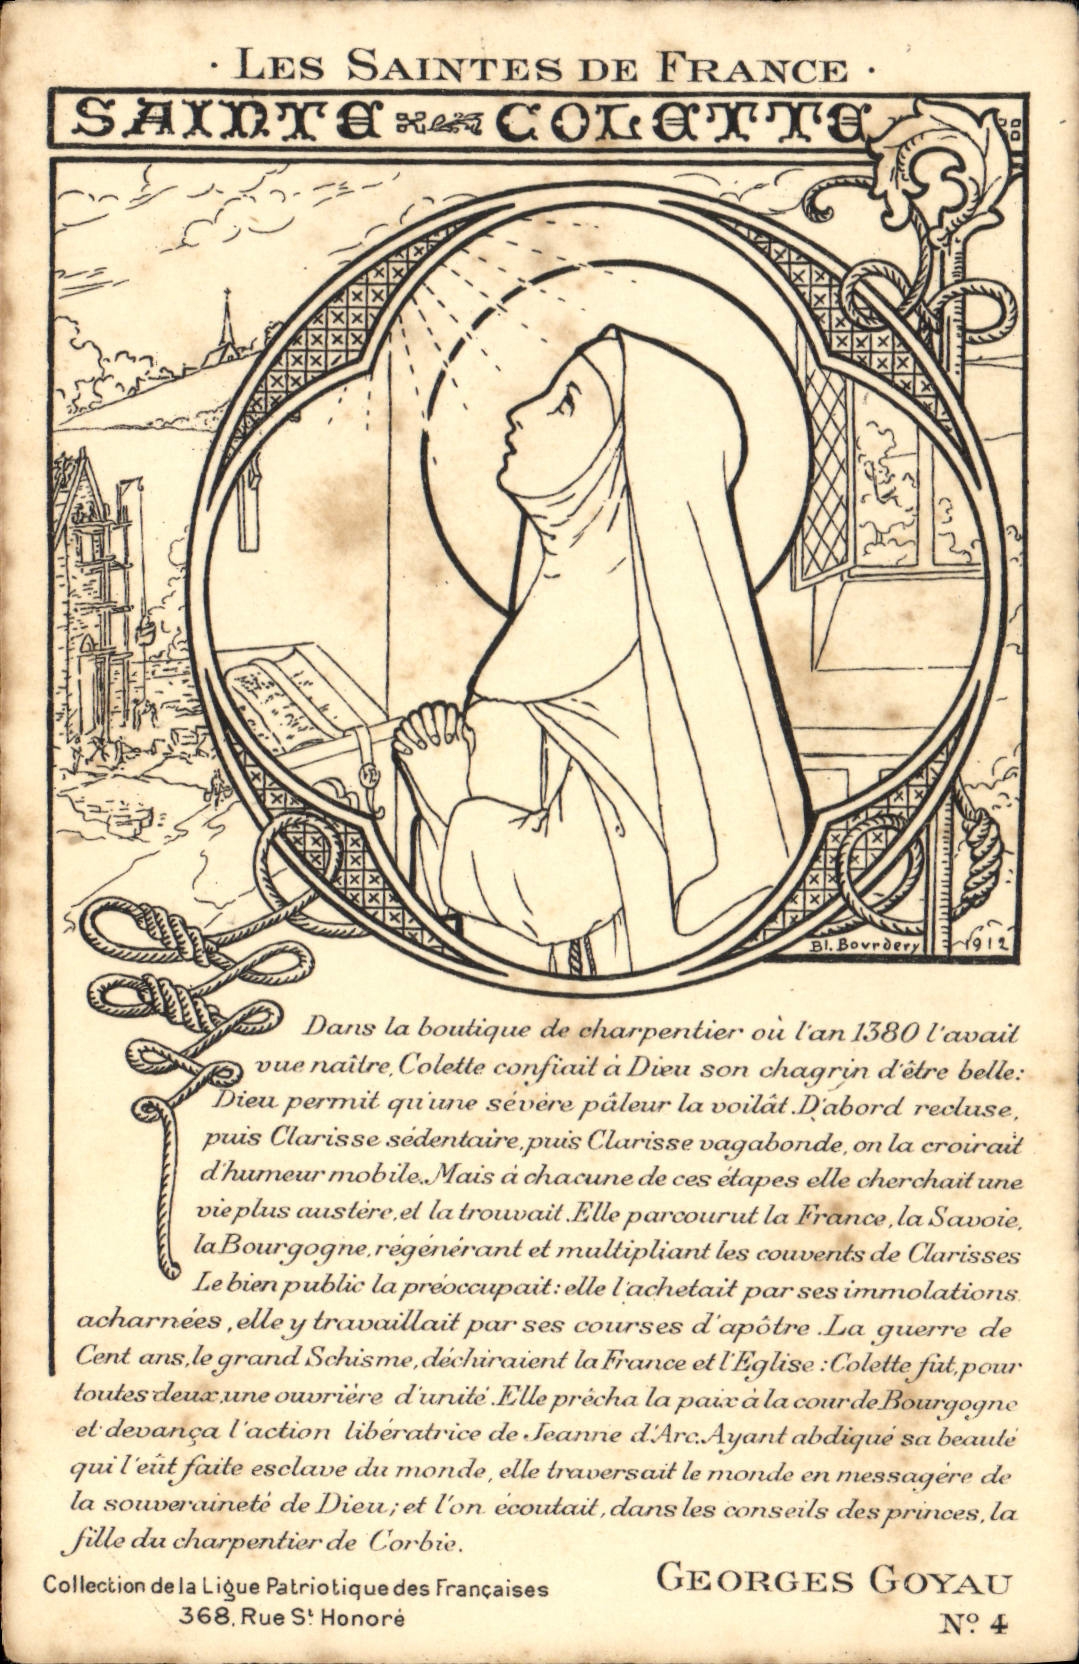 · LES SAINTES DE FRANCE ·
SAINTE COLETTE
Bl. Bourdery 1912
Dans la boutique de charpentier où l'an 1380 l'avait
vue naître, Colette confiait à Dieu son chagrin d'être belle:
Dieu permit qu'une sévère pâleur la voilât. D'abord recluse,
puis Clarisse sédentaire, puis Clarisse vagabonde, on la croirait
d'humeur mobile. Mais à chacune de ces étapes elle cherchait une
vie plus austère, et la trouvait. Elle parcourut la France, la Savoie,
la Bourgogne, régénérant et multipliant les couvents de Clarisses
Le bien public la préoccupait: elle l'achetait par ses immolations
acharnées, elle y travaillait par ses courses d'apôtre. La guerre de
Cent ans, le grand Schisme, déchiraient la France et l'Eglise: Colette fut, pour
toutes deux, une ouvrière d'unité. Elle prêcha la paix à la cour de Bourgogne
et devança l'action libératrice de Jeanne d'Arc. Ayant abdiqué sa beauté
qui l'eût faite esclave du monde, elle traversait le monde en messagère de
la souveraineté de Dieu; et l'on écoutait, dans les conseils des princes, la
fille du charpentier de Corbie.
Collection de la Ligue Patriotique des Françaises
368, Rue St Honoré
GEORGES GOYAU
No. 4